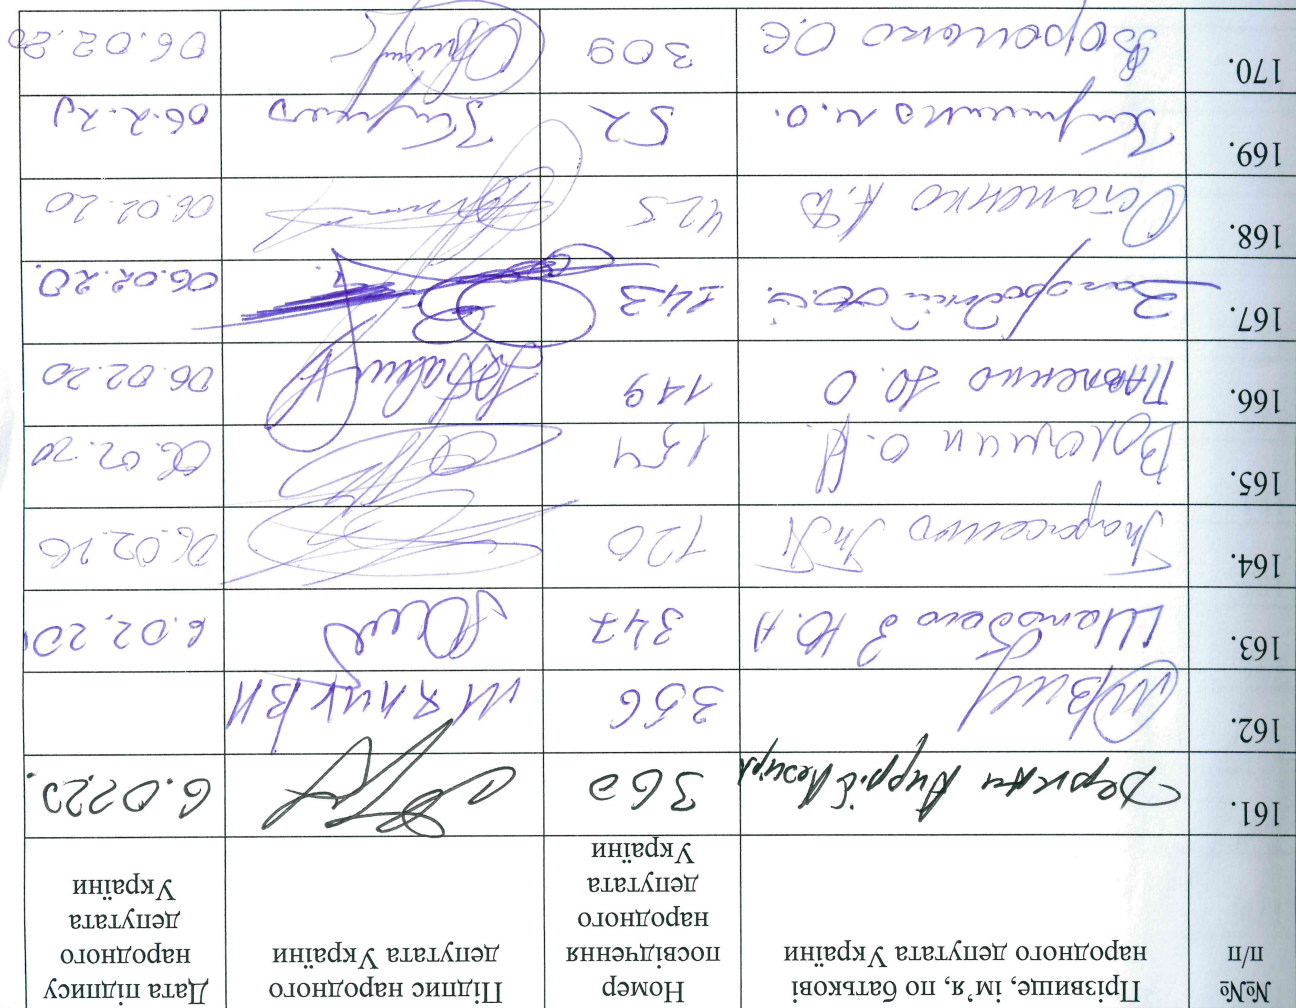 №№ п/п
Прізвище, ім’я, по батькові народного депутата України
Номер посвідчення народного депутата України
Підпис народного депутата України
Дата підпису народного депутата України
161. Деркач Андрій 360 6.02.20.
162. 356 Мялик В Н
163. 347 6.02.20
164. Тарасенко Т.П 120 06.02.20
165. Волошин О. А. 154 06.02.20
166. Павленко Ю. О 149 06.02.20
167. Загородній Ю.І. 143 06.02.20.
168. Остапенко А.Д 425 06.02.20
169. М.О. 52 06.2.20
170. Воронько О Є 309 06.02.20